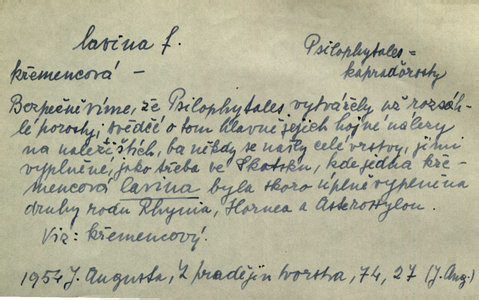 lavina f.
Psilophytales =
kapraďorosty
křemencová —
Bezpečně víme, že Psilophytales vytvářely už rozsáh-
lé porosty, svědčí o tom hlavně jejich hojné nálezy
na nalezištích, ba někdy se našly celé vrstvy, jimi
vyplněné, jako třeba ve Skotsku, kde jedna kře-
mencová lavina byla skoro úplně vyplněna
druhy rodu Rhynia, Hornea a Asteroxylon.
Viz: křemencový.
1954 J. Augusta, Z pradějin tvorstva, 74, 27 (J. Aug.)